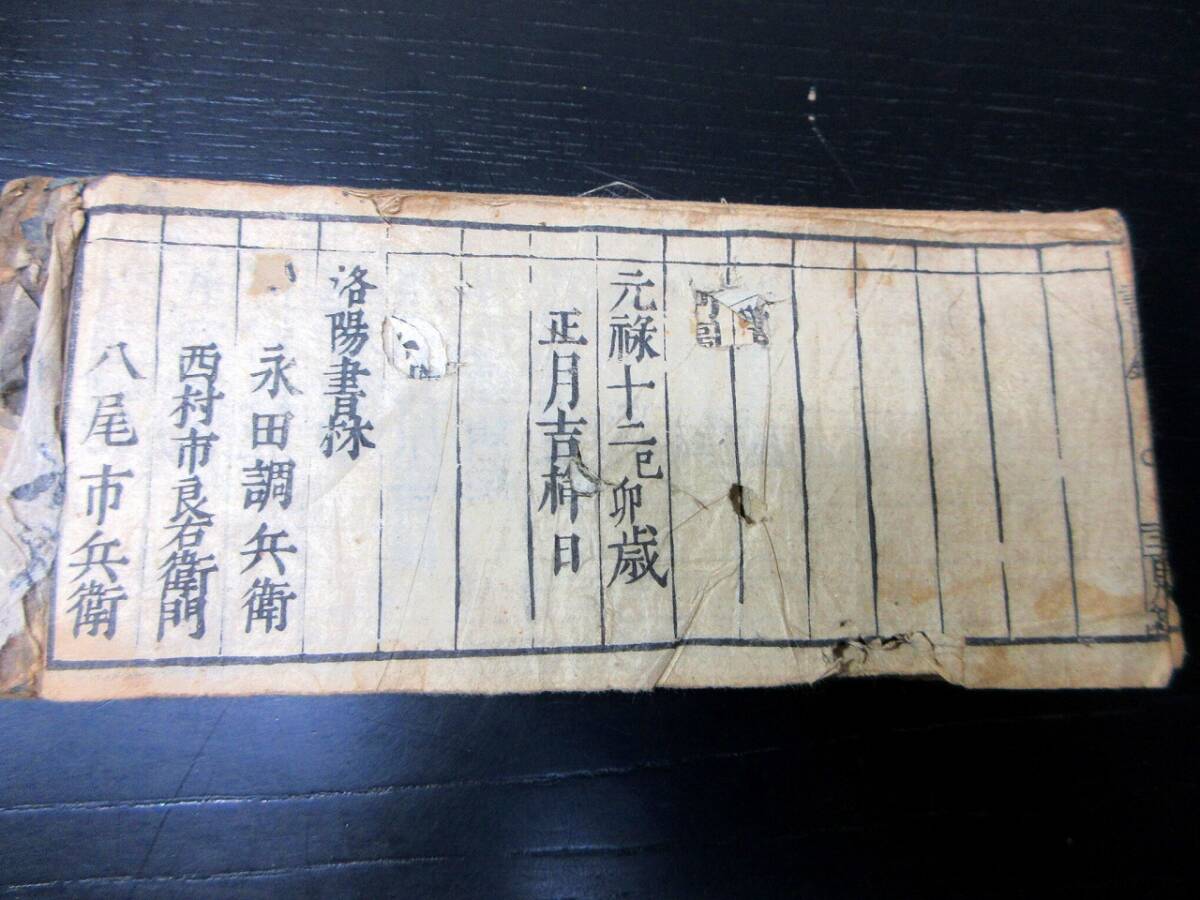 元禄十二己卯歳
正月吉祥日
洛陽書林
永田調兵衛
西村市良右衛門
八尾市兵衛